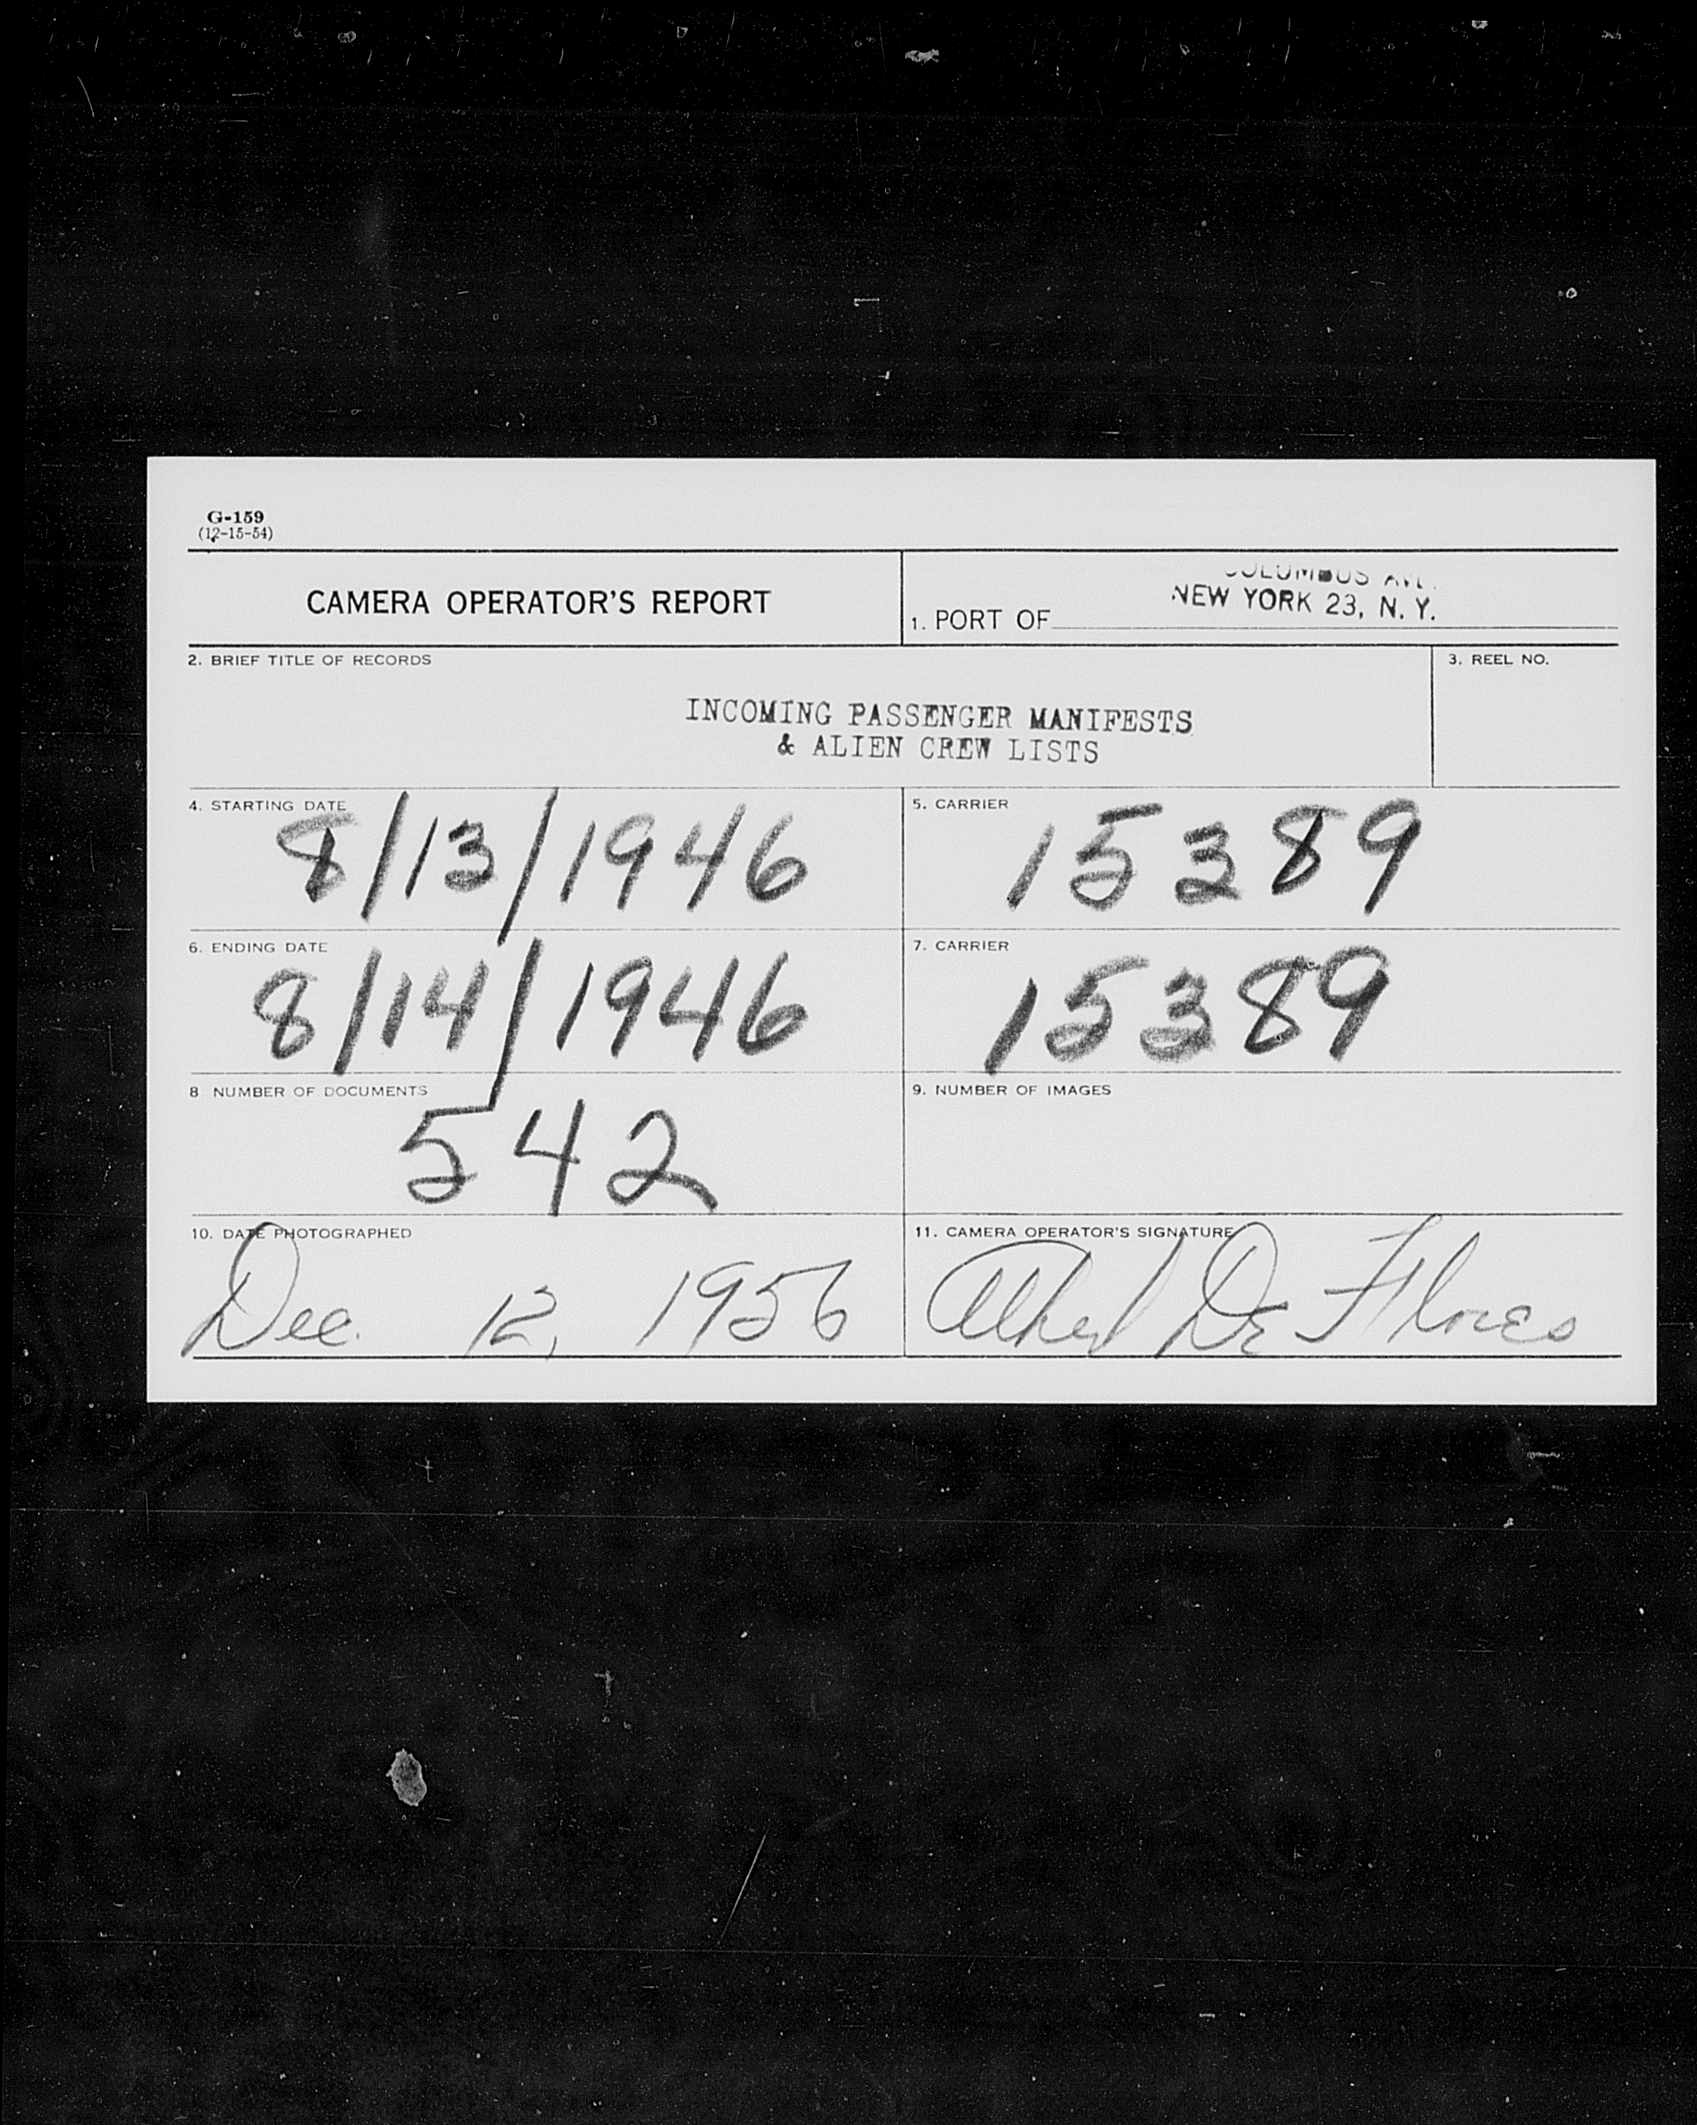 G-159
(12-15-54)
CAMERA OPERATOR'S REPORT
COLUMBUS AVE.
NEW YORK 23, N. Y.
1. PORT OF
2. BRIEF TITLE OF RECORDS
3. REEL NO.
INCOMING PASSENGER MANIFESTS
& ALIEN CREW LISTS
4. STARTING DATE
8/13/1946
5. CARRIER
15389
6. ENDING DATE
8/14/1946
7. CARRIER
15389
8 NUMBER OF DOCUMENTS
542
9. NUMBER OF IMAGES
10. DATE PHOTOGRAPHED
Dec. 12, 1956
11. CAMERA OPERATOR'S SIGNATURE
De Flores